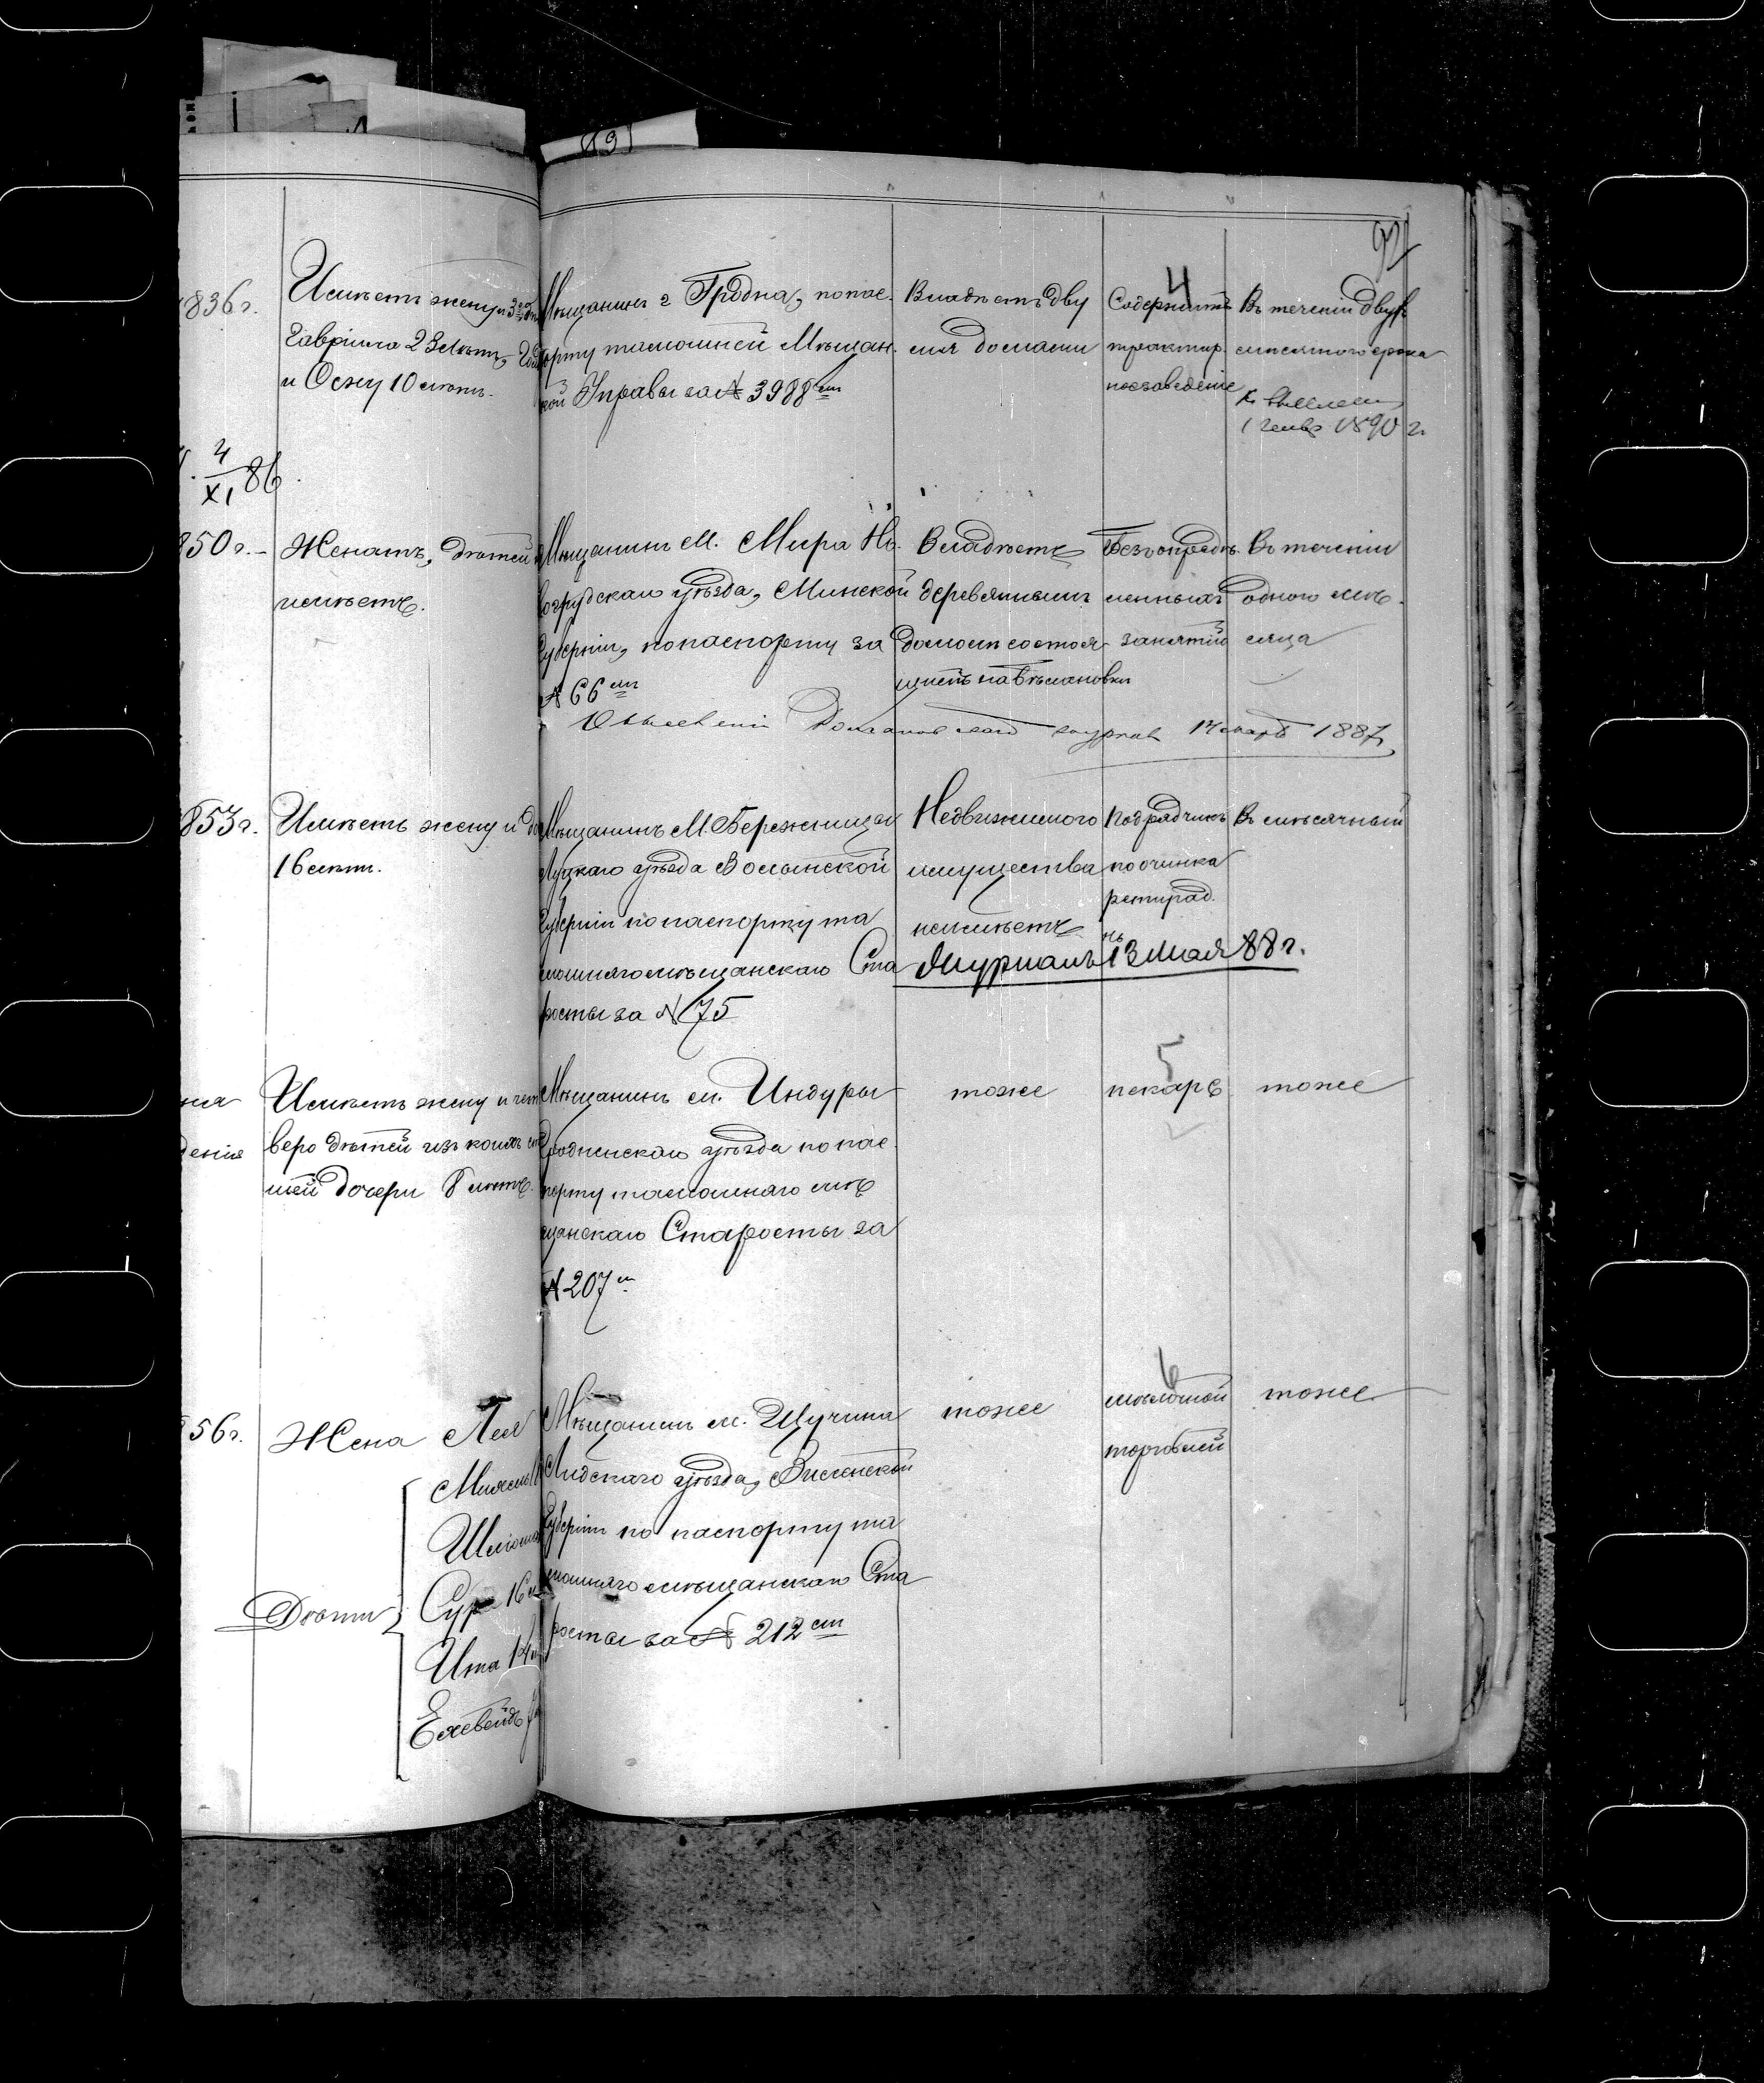 92
1836г.
Имѣетъ жену и 3
Гавріила 23 лѣтъ,
и Осну 10 лѣтъ.
Мѣщанинъ г Гродна, по пас-
порту тамошней Мѣщан-
кой Управы за № 3988
Владѣетъ дву
мя домами
4
Содержитъ
трактир.
ное заведеніе
Въ теченіи двух
мѣсячного срока
1890 г.
4
XI 86.
1850г.
Женатъ, дѣтей
не имѣетъ.
Мѣщанинъ М. Мира Но-
вогрудскаго уѣзда, Минской
Губерніи, по паспорту за
№ 66
Владѣетъ
деревяннымъ
домомъ состоя-
Безъ опредѣ-
ленныхъ
занятій
Въ теченіи
одного мѣ-
сяца
1887
1853г.
Имѣетъ жену и
16 лѣтъ.
Мѣщанинъ М. Бережница
Луцкаго уѣзда Волынской
Губерніи по паспорту та
мошняго мѣщанскаго Ста
росты за № 75
Недвижимого
имущества
не имѣетъ
Подрядчикъ
по очинка
ретирад.
Въ мѣсячный
Журналъ 13 Мая 88 г.
денія
Имѣетъ жену и чет
веро дѣтей изъ коихъ
шей дочери 8 лѣтъ.
Мѣщанинъ м. Индуры
Гродненскаго уѣзда по пас-
порту тамошняго мѣ
щанскаго Старосты за
№ 207
тоже
5
пекарь
тоже
56г.
Жена Лея
Дѣти
Сура 16
Ита 14
Мѣщанинъ м. Щучина
Лидскаго уѣзда, Виленской
Губерніи по паспорту та
мошняго мѣщанскаго Ста
росты за № 212
тоже
6
мѣлочной
торговлей
тоже